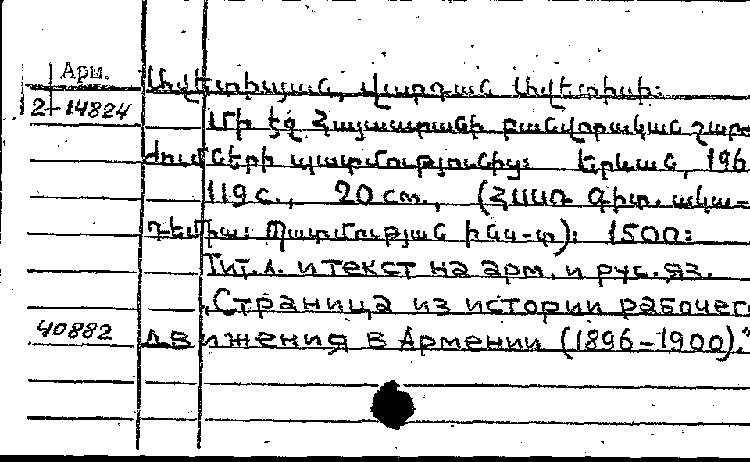 Арм.
2-14824
Ավետիսյան, Վարդան Ավետիսի:
Մի էջ Հայաստանի բանվորական շարժ
ժումների պատմությունից: Երևան, 196
119 с., 20 cm., (ՀՍՍՌ Գիտ. ակա-
դեմիա: Պատմության ինս-տ): 1500:
Тит. л. и текст на арм. и рус. яз.
„Страница из истории рабочего
40882
движения в Армении (1896-1900)."